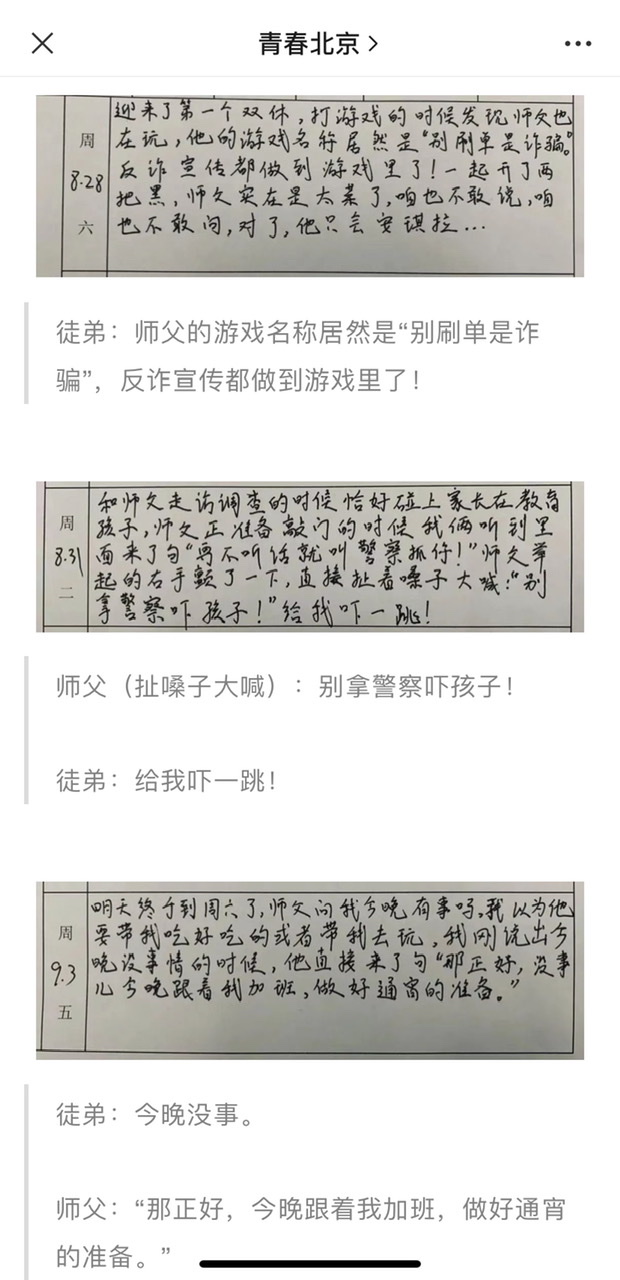 青春北京
迎来了第一个双休，打游戏的时候发现师父也
周
在玩，他的游戏名称居然是“别刷单是诈骗”。
8.28
反诈宣传都做到游戏里了！一起开了两
把黑，师父实在是太菜了，咱也不敢说，咱
六
也不敢问，对了，他只会安琪拉...
徒弟：师父的游戏名称居然是“别刷单是诈
骗”，反诈宣传都做到游戏里了！
和师父走访调查的时候恰好碰上家长在教育
周
孩子，师父正准备敲门的时候我俩听到里
8.31
面来了句“再不听话就叫警察抓你！”师父举
起的右手颤了一下，直接扯着嗓子大喊：“别
二
拿警察吓孩子！”给我吓一跳！
师父（扯嗓子大喊）：别拿警察吓孩子！
徒弟：给我吓一跳！
明天终于到周六了，师父问我今晚有事吗，我以为他
周
要带我吃好吃的或者带我去玩，我刚说出今
9.3
晚没事情的时候，他直接来了句“那正好，没事
五
儿今晚跟着我加班，做好通宵的准备。”
徒弟：今晚没事。
师父：“那正好，今晚跟着我加班，做好通宵
的准备。”